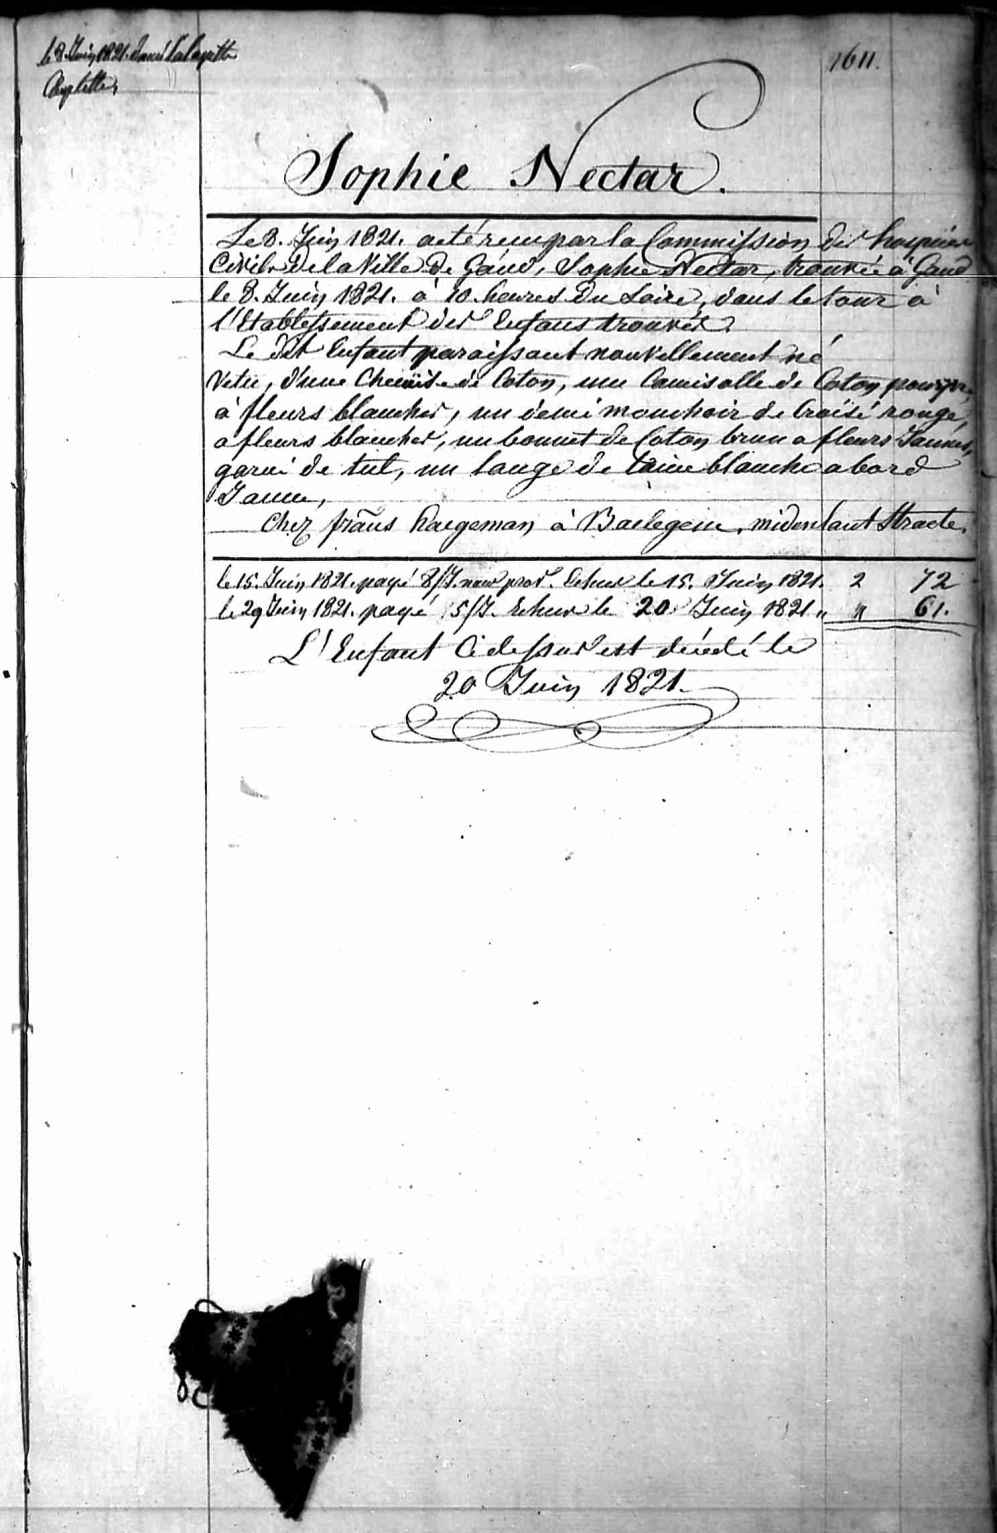 le 8. Juin 1821. donné la layette
Complette,
1611.
Sophie Nectar.
Le 8. Juin 1821. a eté reçu par la Commission des hospices
Civils de la Ville de Gand, Sophie Nectar, trouvée à Gand
le 8. Juin 1821. à 10. heures du Soire, dans le tour à
l'Etablessement des Enfans trouvés.
Le dit Enfant paraissant nouvellement né
Vetu, d'une Chemise de Coton, une Camisolle de Coton pourpre
à fleurs blanches, un demi mouchoir de Croïsé rouge
a fleurs blanches, un bonnet de Coton brun a fleurs Jaunes,
garni de tul, un lange de laine blanche a bord
Jaune,
Chez frans haegeman à Baelegem,
le 15. Juin 1821. payé 8/J. nour prov. Echus le 15. Juin 1821. 2 72
le 29 Juin 1821. payé 5/J. Echus le 20 Juin 1821. " 61.
L'Enfant Cidessus est décédé le
20 Juin 1821.